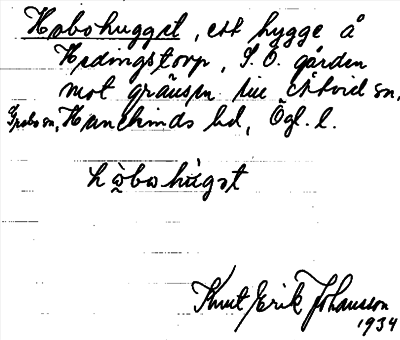 Habohugget, ett hygge å
Hedingstorp, S.O. gården
mot gränsen till Åtvid sn,
Grebo sn, Hanekinds hd, Ögl. l.
hàbohùgət
Knut Erik Johansson
1934